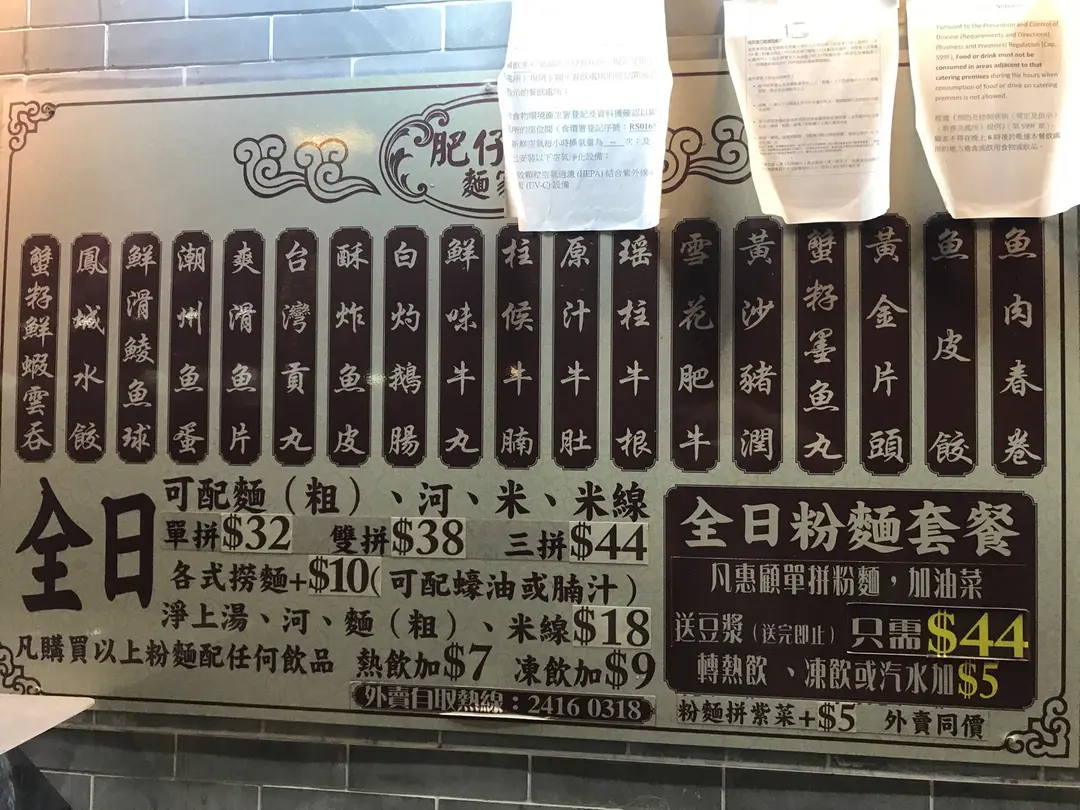 Pursuant to the Prevention and Control of
Disease (Requirements and Directions)
(Business and Premises) Regulation (Cap.
599F), Food or drink must not be
consumed in areas adjacent to that
catering premises during the hours when
consumption of food or drink on catering
premises is not allowed.
RS0165
(HEPA) 結合紫外線
(UV-C) 設備
肥仔
麵家
蟹籽鮮蝦雲吞
鳳城水餃
鮮滑鯪魚球
潮州魚蛋
爽滑魚片
台灣貢丸
酥炸魚皮
白灼鵝腸
鮮味牛丸
柱候牛腩
原汁牛肚
瑶柱牛根
雪花肥牛
黃沙豬潤
蟹籽墨魚丸
黃金片頭
魚皮餃
魚肉春卷
全日
可配麵（粗）、河、米、米線
單拼$32 雙拼$38 三拼$44
各式撈麵+$10(可配蠔油或腩汁)
淨上湯、河、麵（粗）、米線$18
凡購買以上粉麵配任何飲品 熱飲加$7 凍飲加$9
外賣自取熱線：2416 0318
全日粉麵套餐
凡惠顧單拼粉麵，加油菜
送豆漿（送完即止）只需$44
轉熱飲、凍飲或汽水加$5
粉麵拼紫菜+$5 外賣同價